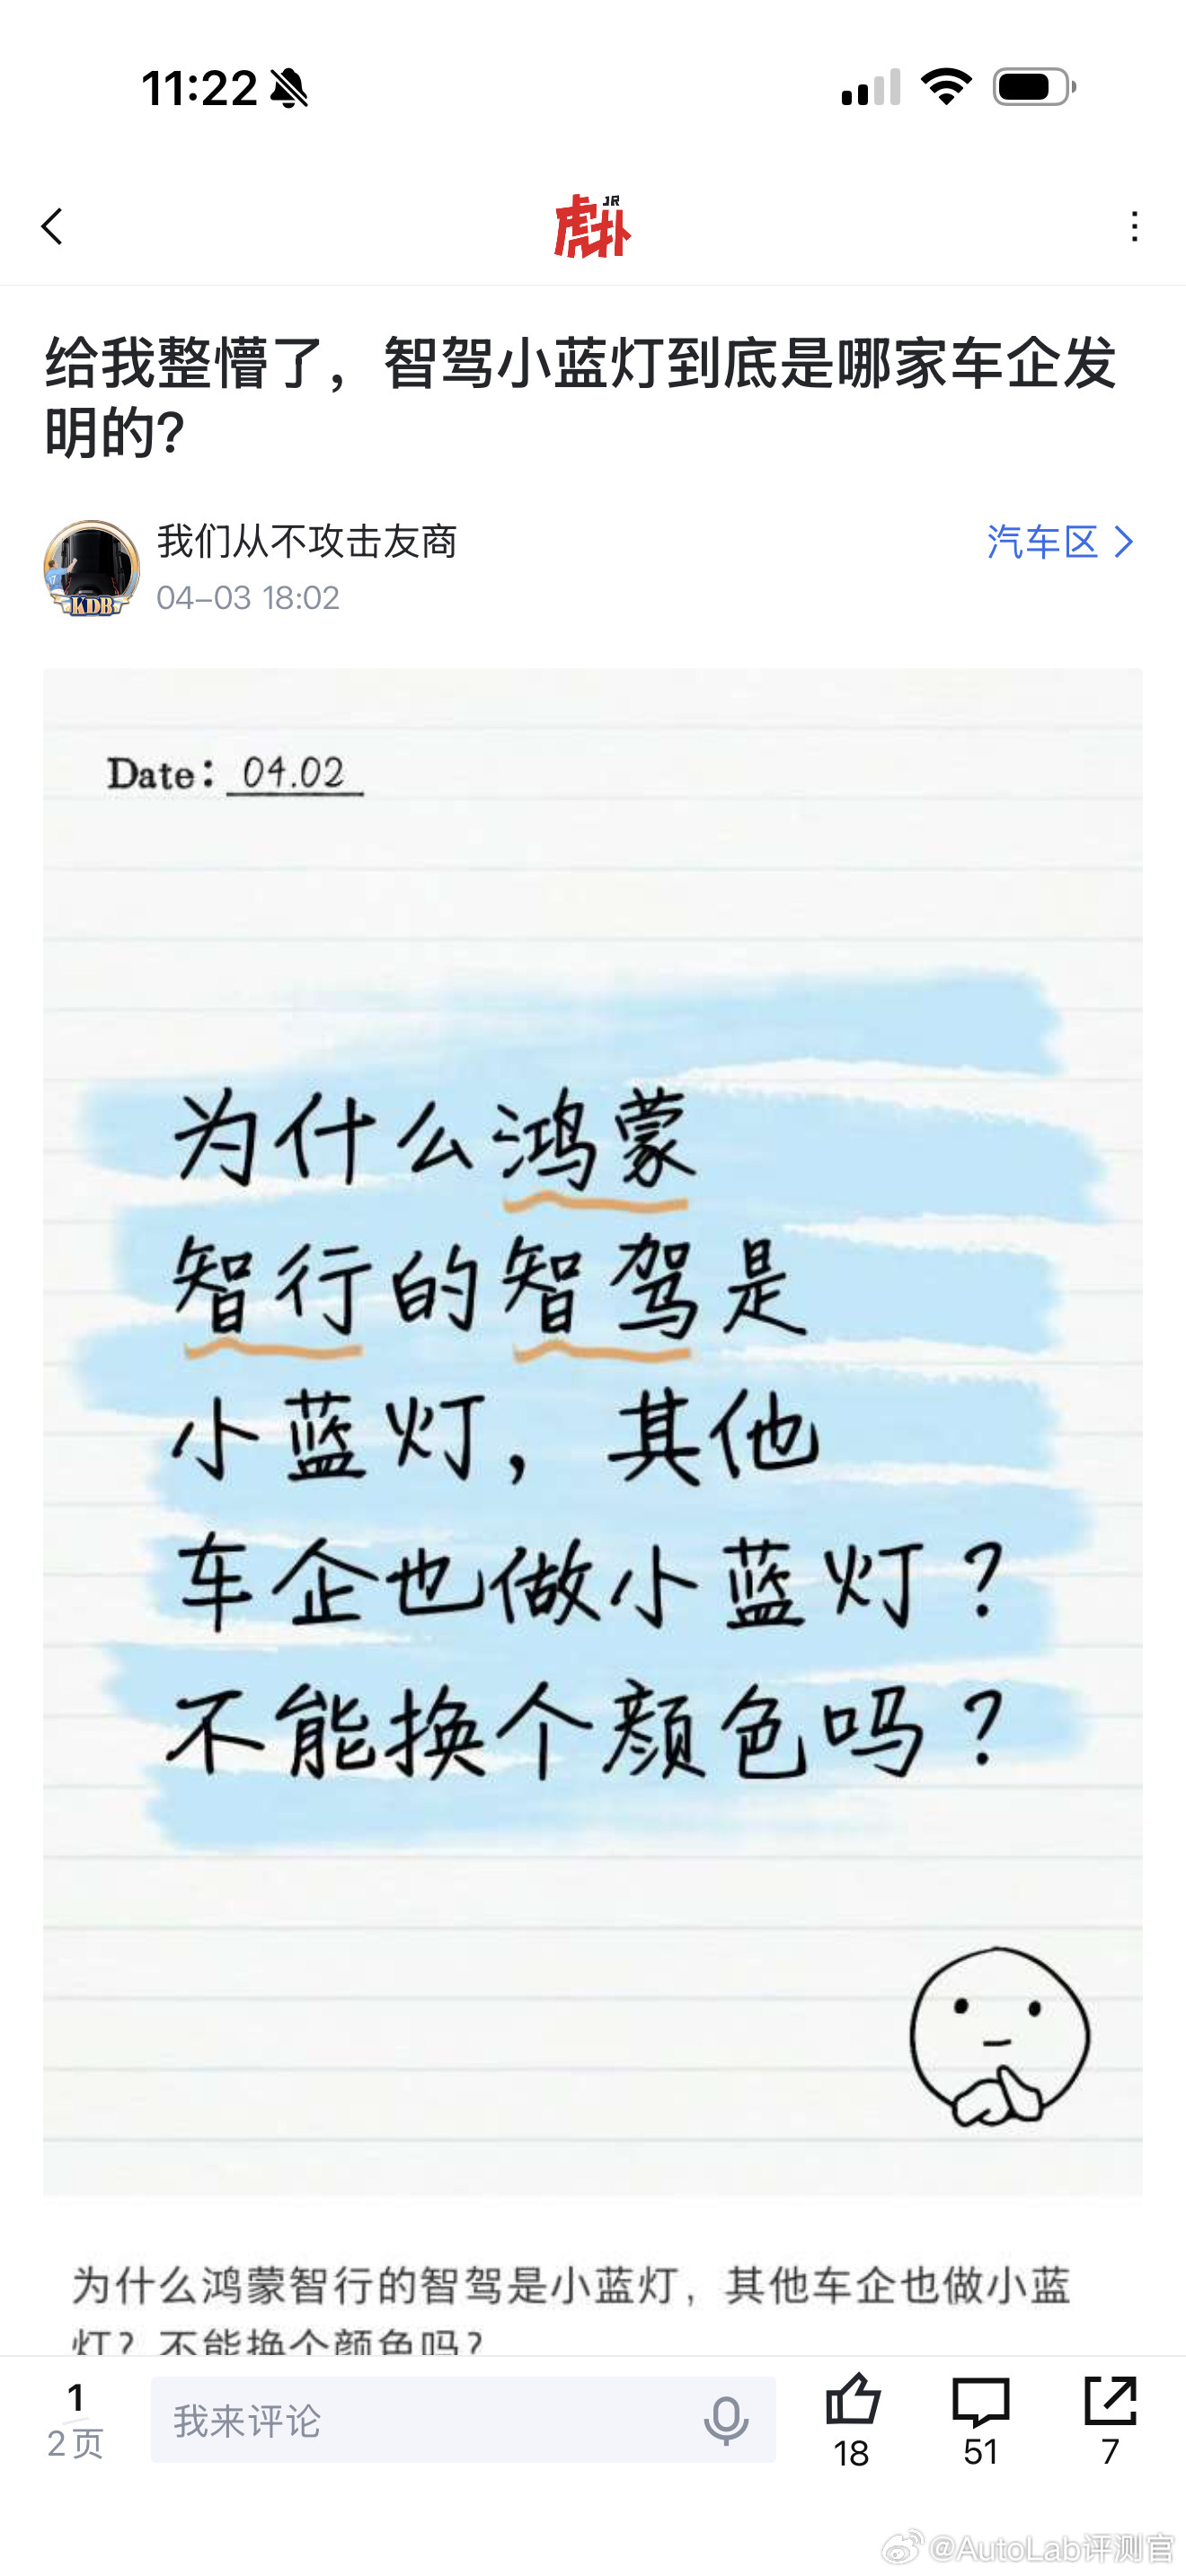 11:22
虎扑
JR
给我整懵了，智驾小蓝灯到底是哪家车企发
明的?
我们从不攻击友商
04-03 18:02
汽车区
KDB
Date: 04.02
为什么鸿蒙
智行的智驾是
小蓝灯，其他
车企也做小蓝灯？
不能换个颜色吗？
为什么鸿蒙智行的智驾是小蓝灯，其他车企也做小蓝
灯？不能换个颜色吗？
1
2页
我来评论
18
51
7
@AutoLab评测官